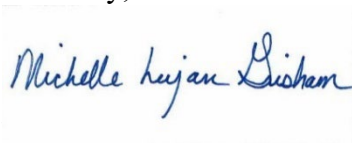 Michelle Lujan Grisham